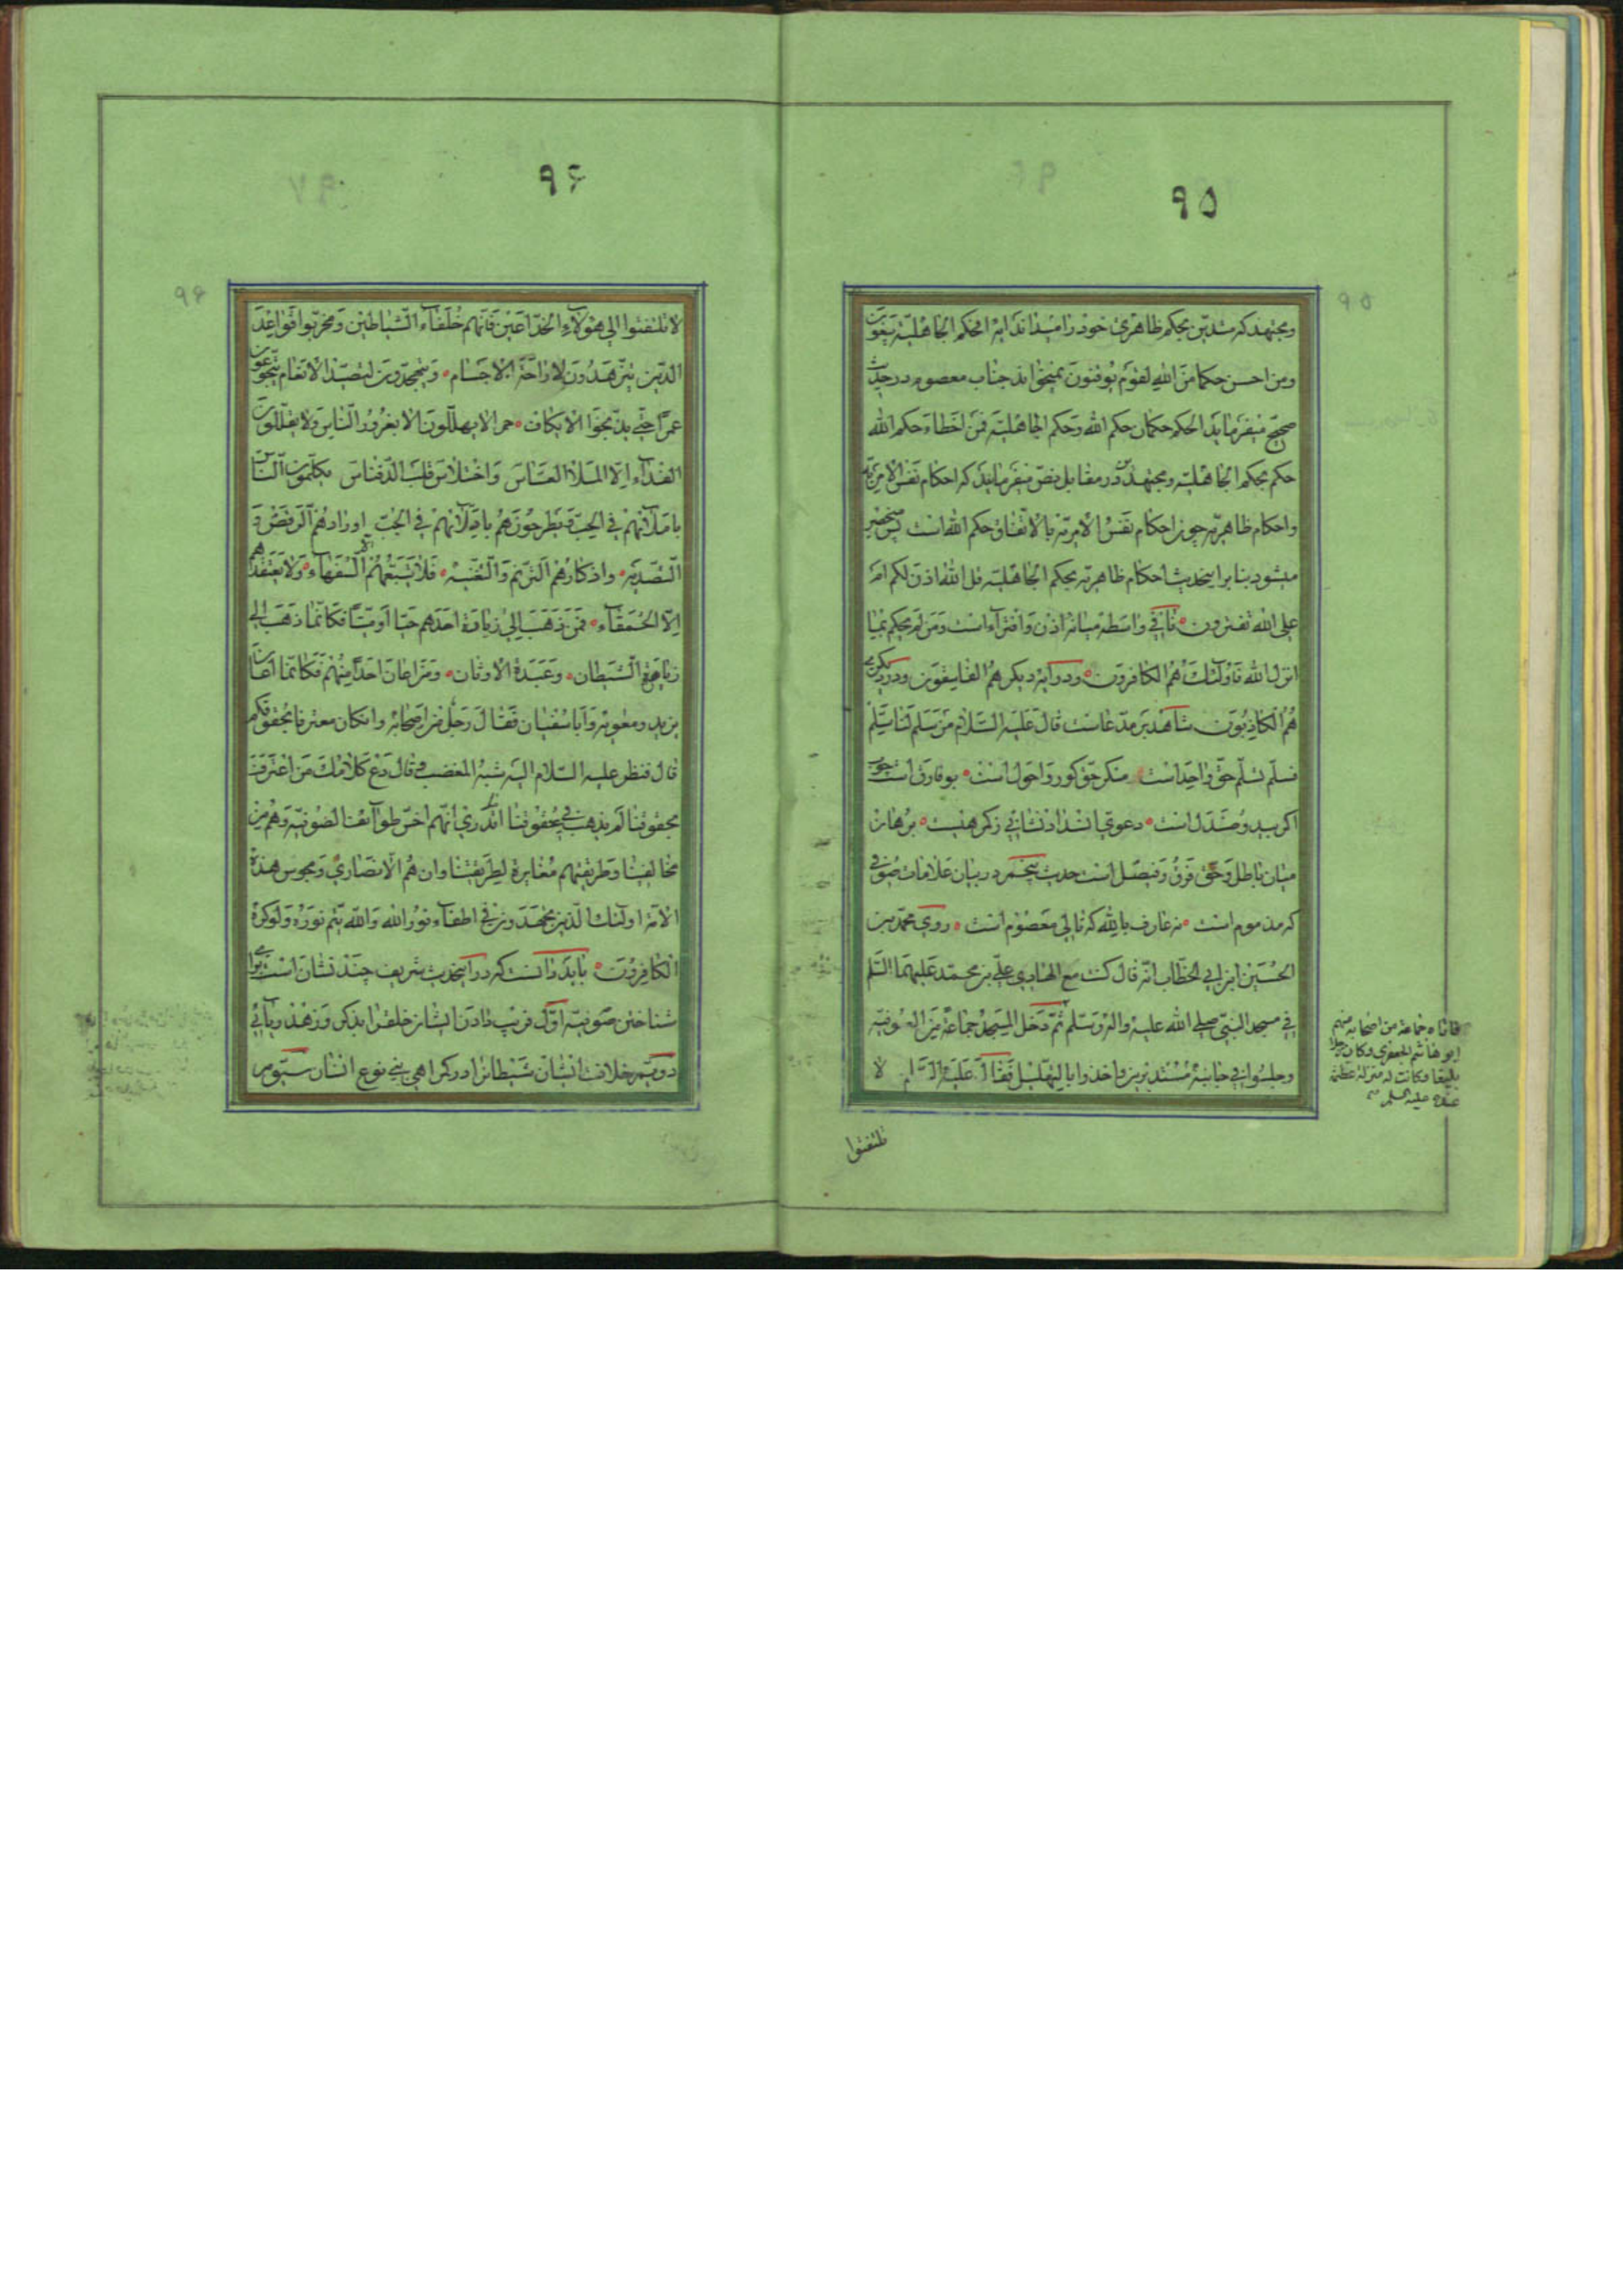 ٩٥
ومجتهد که متدین بحکم ظاهری خود را میداند آیه افحکم الجاهلیة یبغون
ومن احسن حکما من الله لقوم یوقنون نمیخواند جناب معصوم در حدیث
صحیح میفرماید الحکم حکمان حکم الله وحکم الجاهلیة فمن اخطاء حکم الله
حکم بحکم الجاهلیة ومجتهدین در مقابل نص میفرمایند که احکام نفس الامریه
واحکام ظاهریه چون احکام نفس الامریه بالاتفاق حکم الله است پس منحصر
میشود بنابر اینحدیث احکام ظاهریه بحکم الجاهلیة قل الله اذن لکم ام
علی الله تفترون نافی واسطه میانه اذن وافتراء است ومن لم یحکم بما
انزل الله فاولئک هم الکافرون ودر آیه دیگر هم الفاسقون ودر دیگری
هم الکاذبون شاهد بر مدعاست قال علیه السلام من سلم لنا سلم
فسلم تسلم حق واحد است منکر حق کور واحول است بو فارق است چون
اگر بید وصندل است دعوتی انشد اذنشانی زکرهنیست برهان
میان باطل وحق فرق وفیصل است حدیث پنجم در بیان علامات صوفی
که مذموم است نه عارف بالله که تالی معصوم است روی محمد بن
الحسین ابن ابی الخطاب انه قال کنت مع الهادی علی بن محمد علیهما السلم
فی مسجد النبی صلی الله علیه واله وسلم ثم دخل المسجد جماعة من الصوفیه
وجلسوا فی جانبه مستدیرین واخذوا بالتهلیل فقال علیه السلام لا
فاتاه جماعة من اصحابه منهم
ابو هاشم الجعفری وکان رجلا
بلیغا وکانت له منزلة عظیمة
عنده علیه السلم
تلتفتوا
٩۶
لا تلتفتوا الی هولاء الخداعین فانهم خلفاء الشیاطین ومخربوا قواعد
الدین یتزهدون لاراحة الاجسام ویتهجدون لتصید الانعام یتجوعون
عمرا حتی یدیخوا الایکاف حمرا لا یهللون الا بغرور الناس ولا یقللون
الغذاء الا لملاء العساس واختلاس قلب الدفناس یکلمون الناس
باملائهم فی الحب ویطرحونهم بادلائهم فی الجب اورادهم الرقص و
التصدیه واذکارهم الترنم والتغنیه فلا یتبعهم الا السفهاء ولا یعتقدهم
الا الحمقاء فمن ذهب الی زیارة احدهم حیا او میتا فکانما ذهب الی
زیارة الشیطان وعبدة الاوثان ومن اعان احدا منهم فکانما اعان
یزید ومعویه وابا سفیان فقال رجل من اصحابه وان کان معترفا بحقوقکم
قال فنظر علیه السلام الیه شبه المغضب وقال دع کلامک من اعترف
بحقوقنا لم یذهب فی عقوقنا اما تدری انهم اخس طوائف الصوفیه وهم من
مخالفینا وطریقتهم مغایرة لطریقتنا وان هم الا نصاری ومجوس هذه
الامة اولئک الذین یجهدون فی اطفاء نور الله والله یتم نوره ولو کره
الکافرون باید دانست که در اینحدیث شریف چند نشان است برای
شناختن صوفیه اول فریب دادن ایشان خلق را بذکر وزهد ریائی
دویم خلافت ایشان شیطانرا در گمراهی بنی نوع انسان سیوم